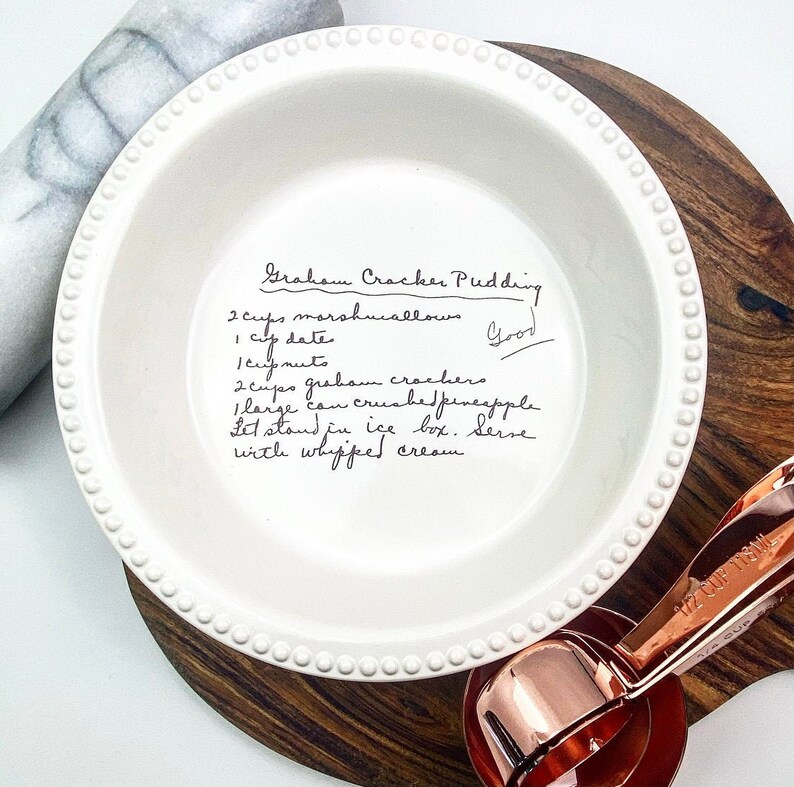 Graham Cracker Pudding
2 cups marshmallows
Good
1 cup dates
1 cup nuts
2 cups graham crackers
1 large can crushed pineapple
Let stand in ice box. Serve
with whipped cream
1/2 CUP 118ML
1/4 CUP